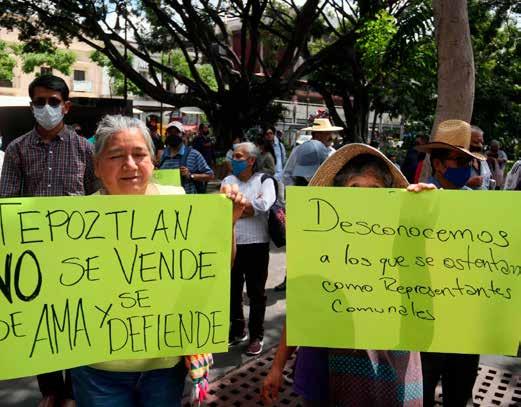 TEPOZTLAN
NO SE VENDE
SE
DE AMA Y DEFIENDE
Desconocemos
a los que se ostentan
como Representantes
Comunales